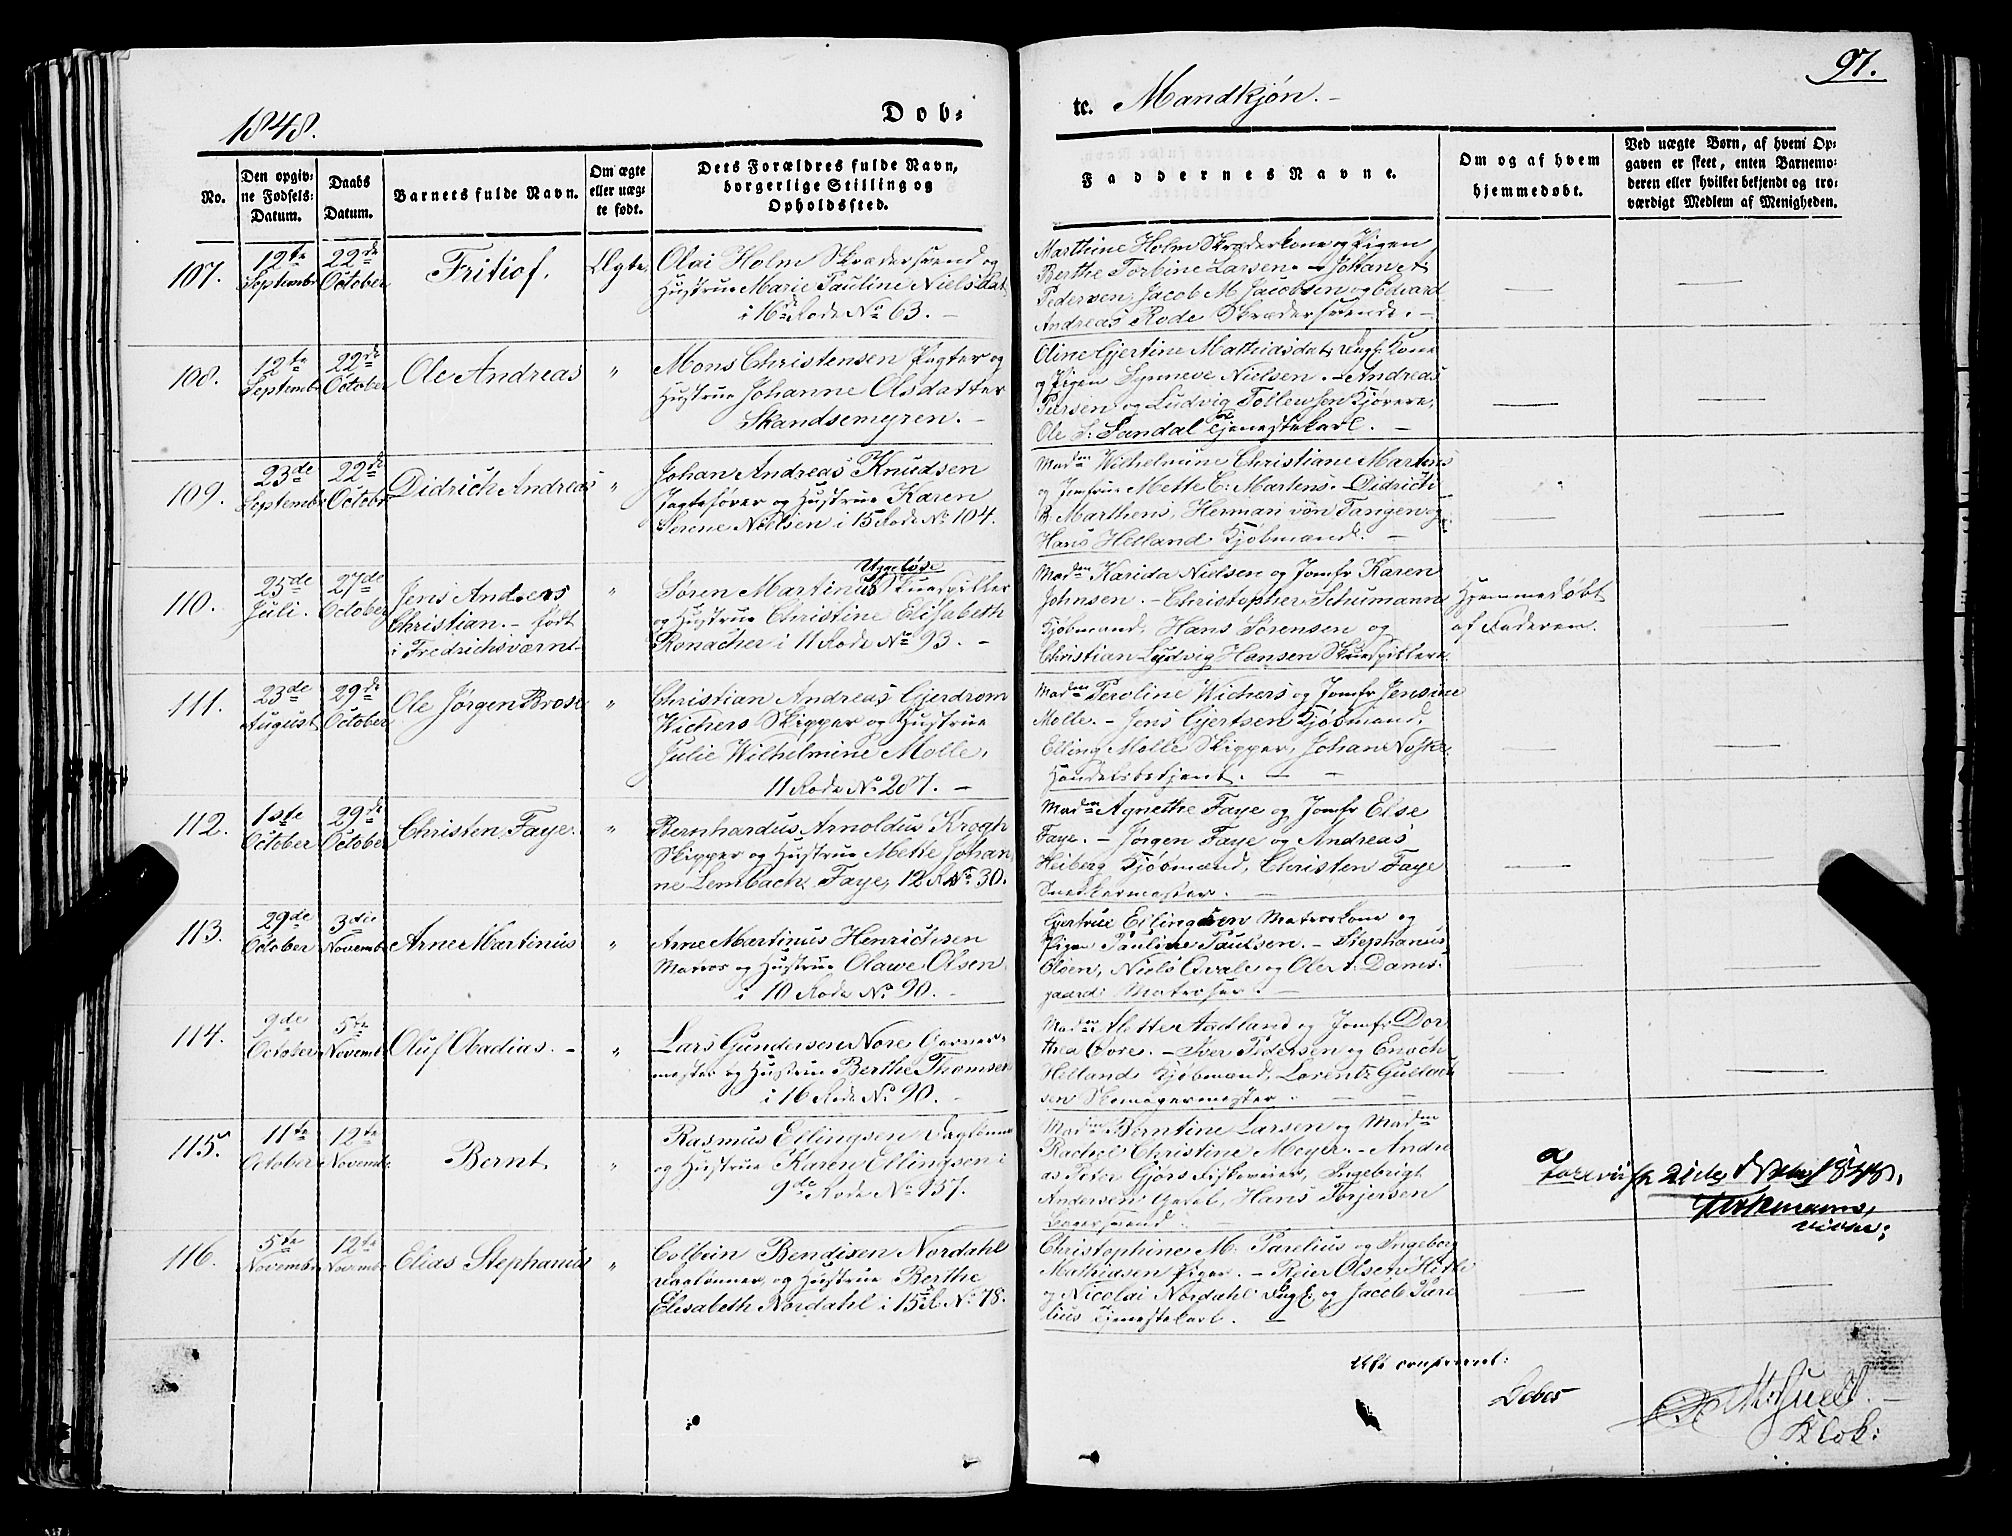 1848.
Dob-
te. Mandkjön. -
97.
No.
Den opgiv-
ne Fødsels-
Datum.
Daabs
Datum.
Barnets fulde Navn.
Om ægte
eller uæg-
te født.
Dets Forældres fulde Navn,
borgerlige Stilling og
Opholdssted.
Faddernes Navne.
Om og af hvem
hjemmedøbt.
Ved uægte Børn, af hvem Op-
gaven er skeet, enten Barnemo-
deren eller hvilket bekjendt og tro-
værdigt Medlem af Menigheden.
107.
12te
September
22de
October
Fritiof.
Ægte.
Olai Holm Skrædersvend og
Hustrue Marie Pauline Nielsdat.
i 16de Rode No 63. -
Marthine Holm Skræderkone og Pigen
Berthe Torbine Larsen. - Johan A.
Pedersen, Jacob M. Jacobsen og Edvard
Andreas Rode Skrædersvende. -
108.
12te
September
22de
October
Ole Andreas
"
Mons Christensen Pagter og
Hustrue Johanne Olsdatter
Skandsemyren. -
Oline Gjertine Mathiasdat. Dagl. Kone
og Pigen Synneve Nielsen. - Andreas
Persen og Ludvig Tollevsen Kjørere,
Ole S. Sandal Tjenestekarl. -
109.
23de
September
22de
October
Didrich Andreas
"
Johan Andreas Knudsen
Jagtefører og Hustrue Karen
Serene Nielsen i 15 Rode No 104.
Maden Wilhelmine Christiane Martens
og Jomfrue Mette C. Martens. Didrich
R. Marthens, Herman von Tangen og
Hans Helland Kjøbmænd. -
110.
25de
Juli.
27de
October
Jens Anders
Christian. - født
i Fredrichsværn -
"
Søren Martinus Skuespiller
og Hustrue Christine Elisabeth
Ronacher i 11 Rode No 93. -
Maden Karida Nielsen og Jomfr Karen
Johnsen. - Christopher Schumann
Kjøbmand, Hans Sørensen og
Christian Ludvig Hansen Skuespillere.
Hjemmedøbt
af Faderen.
111.
23de
August
29de
October
Ole Jørgen Brose
"
Christian Andreas Gjerdrom
Wichers Skipper og Hustrue
Julie Wilhelmine Molle.
11 Rode No 207. -
Maden Peroline Wichers og Jomfr Jensine
Molle. - Jens Gjertsen Kjøbmand,
Elling Molle Skipper, Johan
Handelsbetjent. - -
112.
1ste
October
29de
October
Christen Faye.
"
Bernhardus Arnoldus Krogh
Skipper og Hustrue Mette Johan-
ne Lembach Faye, 12 R. No 30.
Maden Agnethe Faye og Jomfr Else
Faye. - Jørgen Faye og Andreas
Heiberg Kjøbmænd, Christen Faye
Snedkermester. -
113.
29de
October
3die
November
Arne Martinus
"
Arne Martinus Henrichsen
Matros og Hustrue Olave Olsen
i 10 Rode No 90. -
Gjertrue Ellingsen Matroskone og
Pigen Pauline Paulsen. - Stephanus
Olsen, Niels Qvale og Ole A. Dams-
gaard Matroser. -
114.
9de
October
5te
Novemb.
Oluf Obadias. -
"
Lars Gundersen Nore Garver-
mester og Hustrue Berthe Thomsen
i 16 Rode No 90. -
Maden Mette Aadland og Jomfr. Dor-
thea Øvre. - Iver Pedersen og Enoch
Helland Kjøbmænd, Lorentz Gullach-
sen Skomagermester. - -
115.
11te
October
12te
Novemb.
Bernt.
"
Rasmus Ellingsen Dagløner
og Hustrue Karen Ellingsen i
9de Rode No 157.
Maden Berntine Larsen og Maden
Rachel Christine Meyer. - Andre-
as Peter Gjørs Fiskeveier, Ingebrigt
Andersen Garvb., Hans Torjersen
Bagersvend. -
116.
5te
November
12te
November
Elias Stephanus
"
Colbein Bendixen Nordahl
Dagløner og Hustrue Berthe
Elisabeth Nordahl i 15 R. No 78.
Christophine M. Parelius og Ingeborg
Mathiasen Piger. - Reier Olsen Hetle
og Nicolai Nordahl Dagl. og Jacob Pare-
lius Tjenestekarl. -
Rft. confereret:
Debes
Klok: